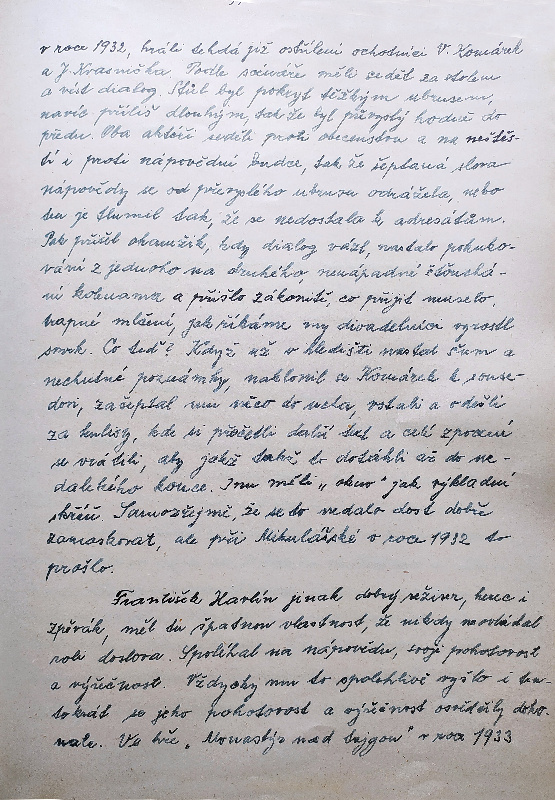 v roce 1932, hráli tehdá již ostřílení ochotníci V. Komárek
a J. Krasnička. Podle scénáře měli sedět za stolem
a vést dialog. Stůl byl pokryt těžkým ubrusem,
navíc příliš dlouhým, tak že byl převyslý hodně do
předu. Oba aktéři seděli proti obecenstvu a na neštěs-
tí i proti nápovědní budce, tak že šeptaná slova
nápovědy se od převyslého ubrusu odrážela, nebo
ten je tlumil tak, že se nedostala k adresátům.
Pak přišel okamžik, kdy dialog vázl, nastalo pokuko-
vání z jednoho na druhého, nenápadné šťouchá-
ní kolenama a přišlo zákonitě, co přijít muselo,
trapné mlčení, jak říkáme my divadelníci vyrostl
smrk. Co teď? Když už v hledišti nastal šum a
nechutné poznámky, naklonil se Komárek k souse-
dovi, zašeptal mu něco do ucha, vstali a odešli
za kulisy, kde si přečetli další text a celí zpocení
se vrátili, aby jakž takž to dotáhli až do ne-
dalekého konce. Inu měli „okno" jak výkladní
skříň. Samozřejmě, že se to nedalo dost dobře
zamaskovat, ale při Mikulášské v roce 1932 to
prošlo.
František Havlín jinak dobrý režiser, herec i
zpěvák, měl tu špatnou vlastnost, že nikdy neovládal
roli doslova. Spoléhal na nápovědu, svoji pohotovost
a výřečnost. Vždycky mu to spolehlivě vyšlo i ten-
tokrát se jeho pohotovost a výřečnost osvědčily doko-
nale. Ve hře „Monastýr nad tajgou" v roce 1933